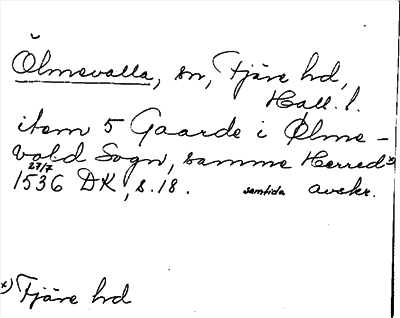 Ölmevalla, sn, Fjäre hd,
Hall. l.
item 5 Gaarde i Ølme-
vold Sogn, samme Herred x)
27/7
1536 DK, s. 18. samtida avskr.
x) Fjäre hd